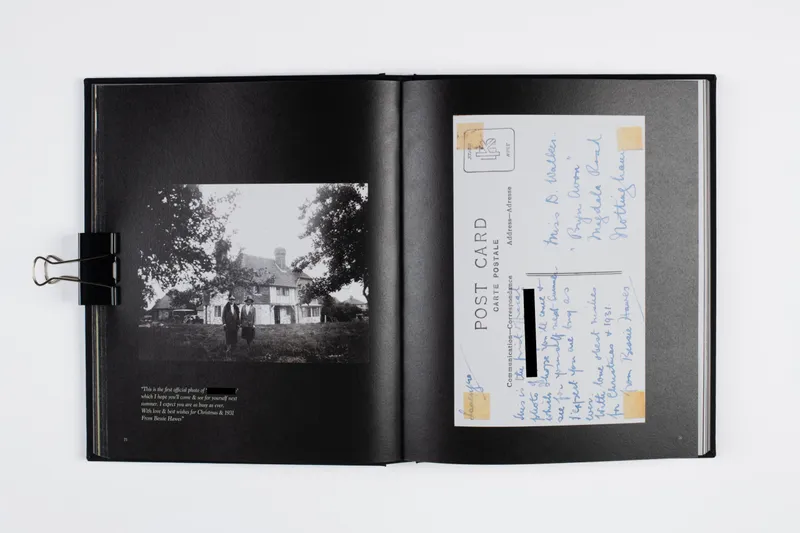 "This is the first official photo of
which I hope you'll come & see for yourself next
summer. I expect you are as busy as ever.
With love & best wishes for Christmas & 1931
From Bessie Hawes"
POST CARD
CARTE POSTALE
Communication–Correspondence
Address–Adresse
This is the first
photo of
which I hope you'll come &
see for yourself next summer
I expect you are busy as
ever
With love & best wishes
for Christmas & 1931
from Bessie Hawes
Miss B. Walker.
"Bryn Avon"
Magdala Road
Nottingham